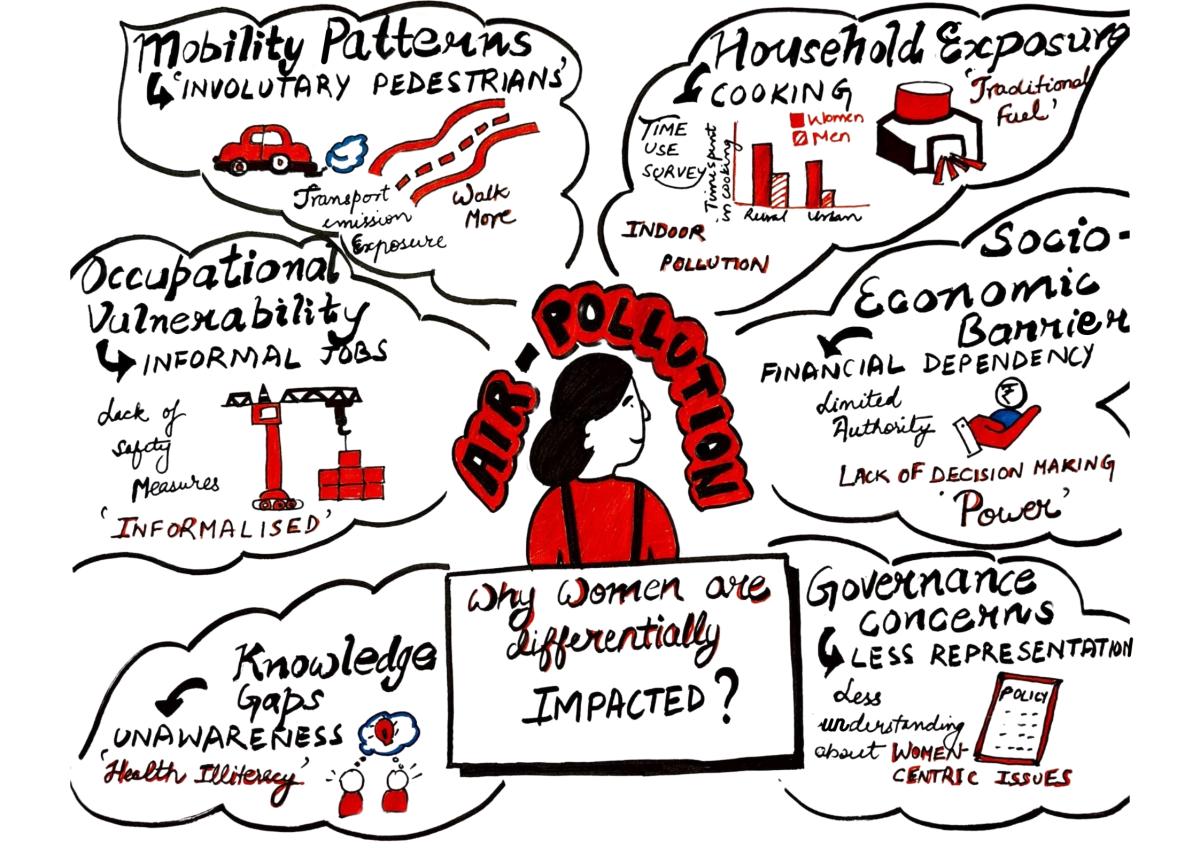 Mobility Patterns
'INVOLUTARY PEDESTRIANS'
Transport
emission
Exposure
Walk
More
Household Exposure
COOKING
'Traditional
Fuel'
TIME
USE
SURVEY
Time spent
in cooking
Women
Men
Rural
Urban
INDOOR
POLLUTION
Occupational
Vulnerability
INFORMAL JOBS
Lack of
Safety
Measures
'INFORMALISED'
AIR-POLLUTION
Socio-
Economic
Barrier
FINANCIAL DEPENDENCY
Limited
Authority
₹
LACK OF DECISION MAKING
'Power'
Knowledge
Gaps
UNAWARENESS
'Health Illiteracy'
Why Women are
differentially
IMPACTED?
Governance
concerns
LESS REPRESENTATION
Less
understanding
about WOMEN-
CENTRIC ISSUES
POLICY